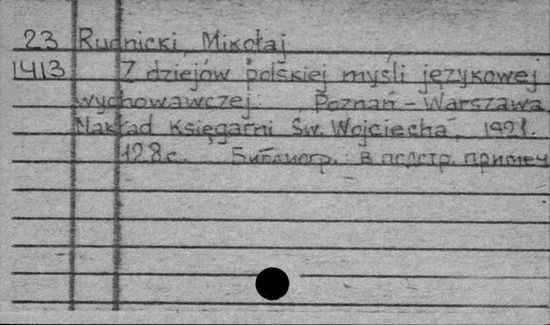 23 Rudnicki, Mikołaj
1413 Z dziejów polskiej myśli językowej
wychowawczej. Poznań - Warszawa,
Nakład Księgarni Św. Wojciecha, 1921.
128 с. Библиогр. в подстр. примеч